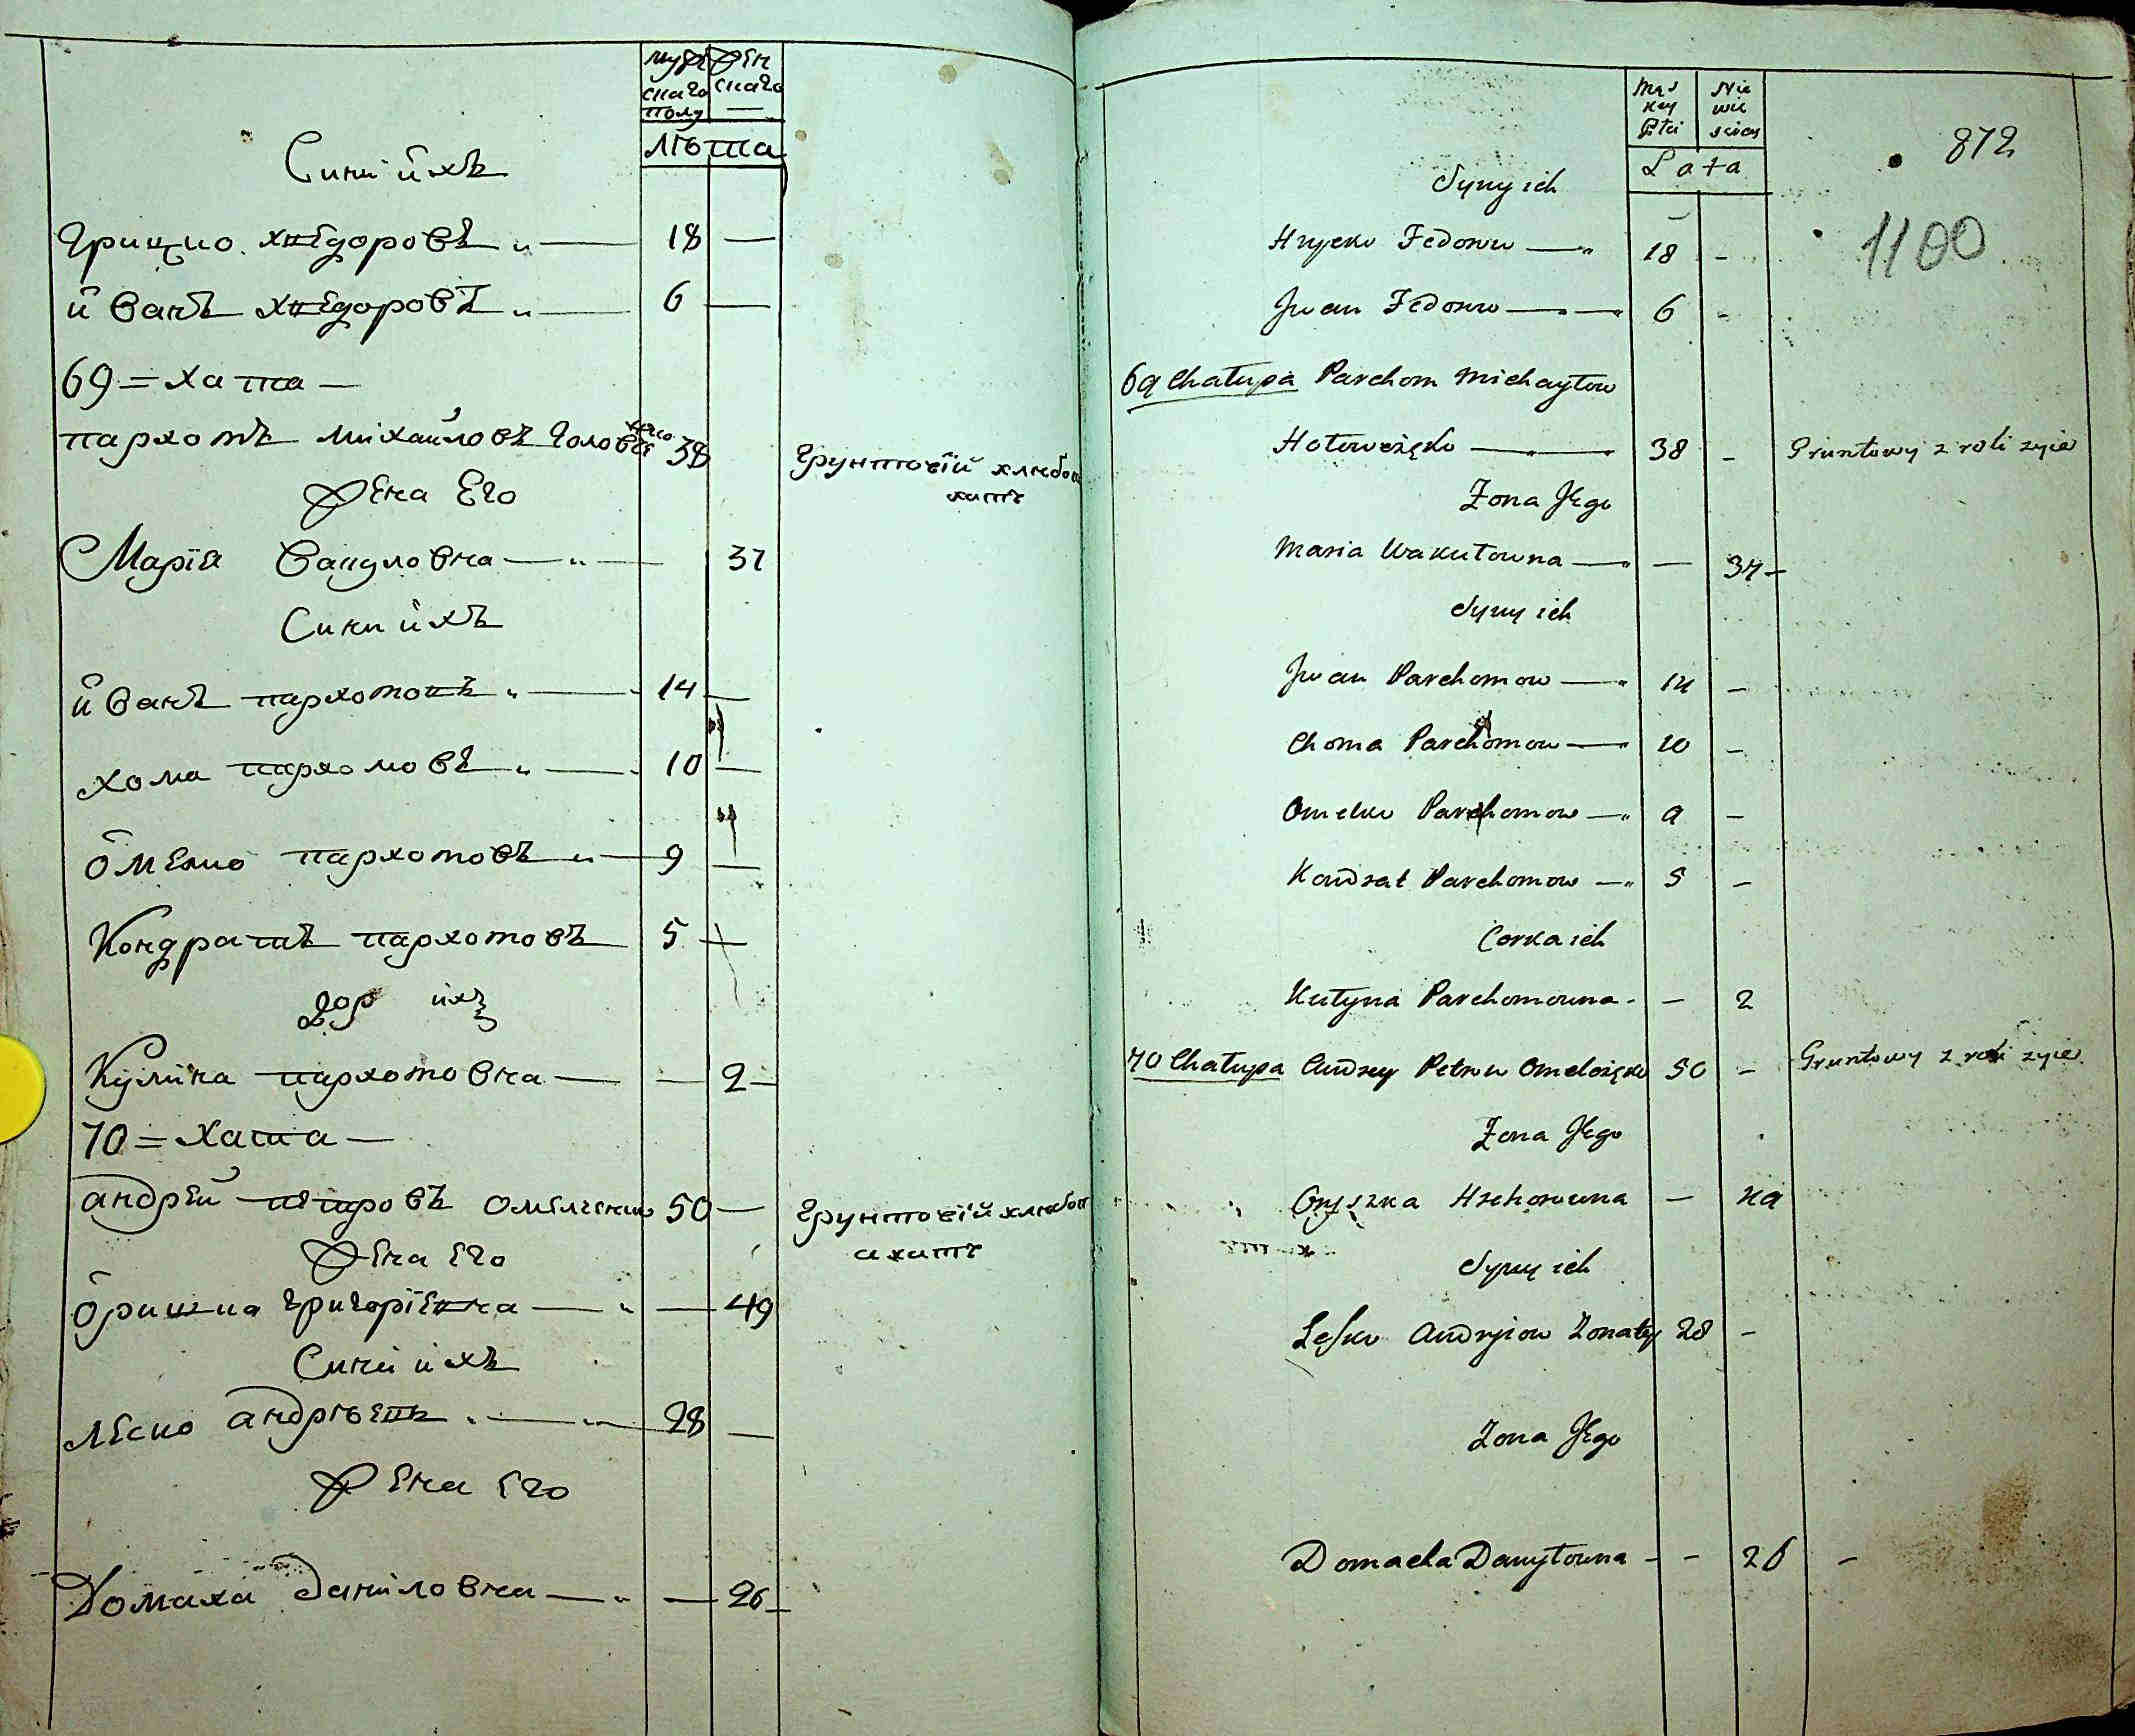 мужескаго полу
женскаго
лѣта
Сини ихъ
Грицко хведоровъ 18 —
иванъ хведоровъ 6 —
69 = хата —
пархомъ михайловъ Головченко 38
грунтовій хлебопахатъ
жена Его
Марія Вакуловна — 37
Сини ихъ
иванъ пархомовъ 14 —
хома пархомовъ 10 —
омелко пархомовъ 9 —
Кондратъ пархомовъ 5 —
дор ихъ
Кулина пархомовна — — 2
70 = хата —
андрей петровъ Омелченко 50 —
грунтовій хлебопахатъ
жена Его
оришка григоріевна — — 49
Сини ихъ
леско андрѣевъ 28 —
жена Его
Домаха Даниловна — — 26
Męskey Płci
Niewieściey
Lata
872
1100
Syny ich
Hrycko Fedorow — 18 -
Jwan Fedorow — 6 -
69 Chałupa Parchom Michayłow
Hołowczęko — 38 - Gruntowy z roli zyie
Zona Jego
Maria Wakułowna — — 37 -
Syny ich
Jwan Parchomow — 14 -
Choma Parchomow — 10 -
Omelko Parchomow — 9 -
Kondrat Parchomow — 5 -
Corka ich
Kulyna Parchomowna - — 2
70 Chałupa Andrey Petrow Omelczęko 50 - Gruntowy z roli zyie
Zona Jego
Oryszka Hrehorowna — 49
Syny ich
Lesko Andryiow Zonaty 28 -
Zona Jego
Domacha Danyłowna - - 26 -